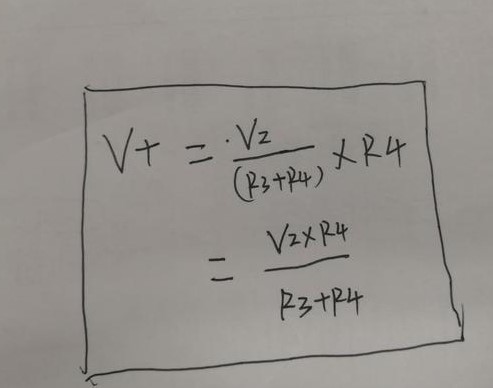 V+ = V2/(R3+R4) × R4
= V2×R4/R3+R4